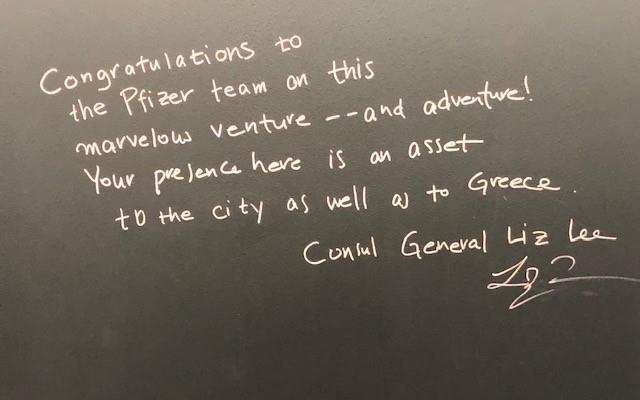 Congratulations to
the Pfizer team on this
marvelous venture -- and adventure!
Your presence here is an asset
to the city as well as to Greece.
Consul General Liz Lee